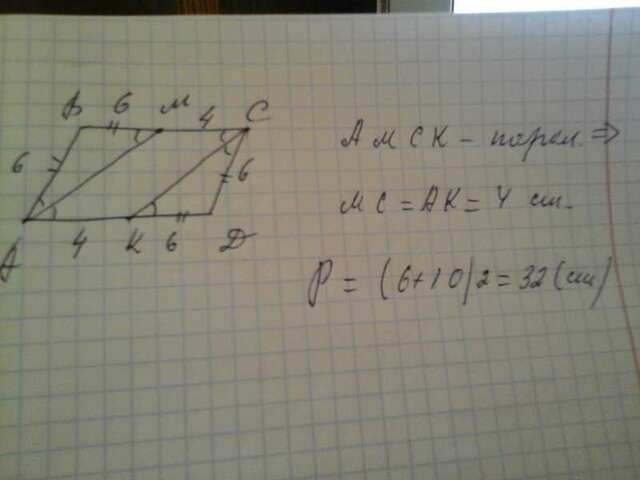 B 6 M 4 C
6 6
A 4 K 6 D
AMCK - парал. ⇒
MC = AK = 4 см.
P = (6+10)2 = 32 (см)